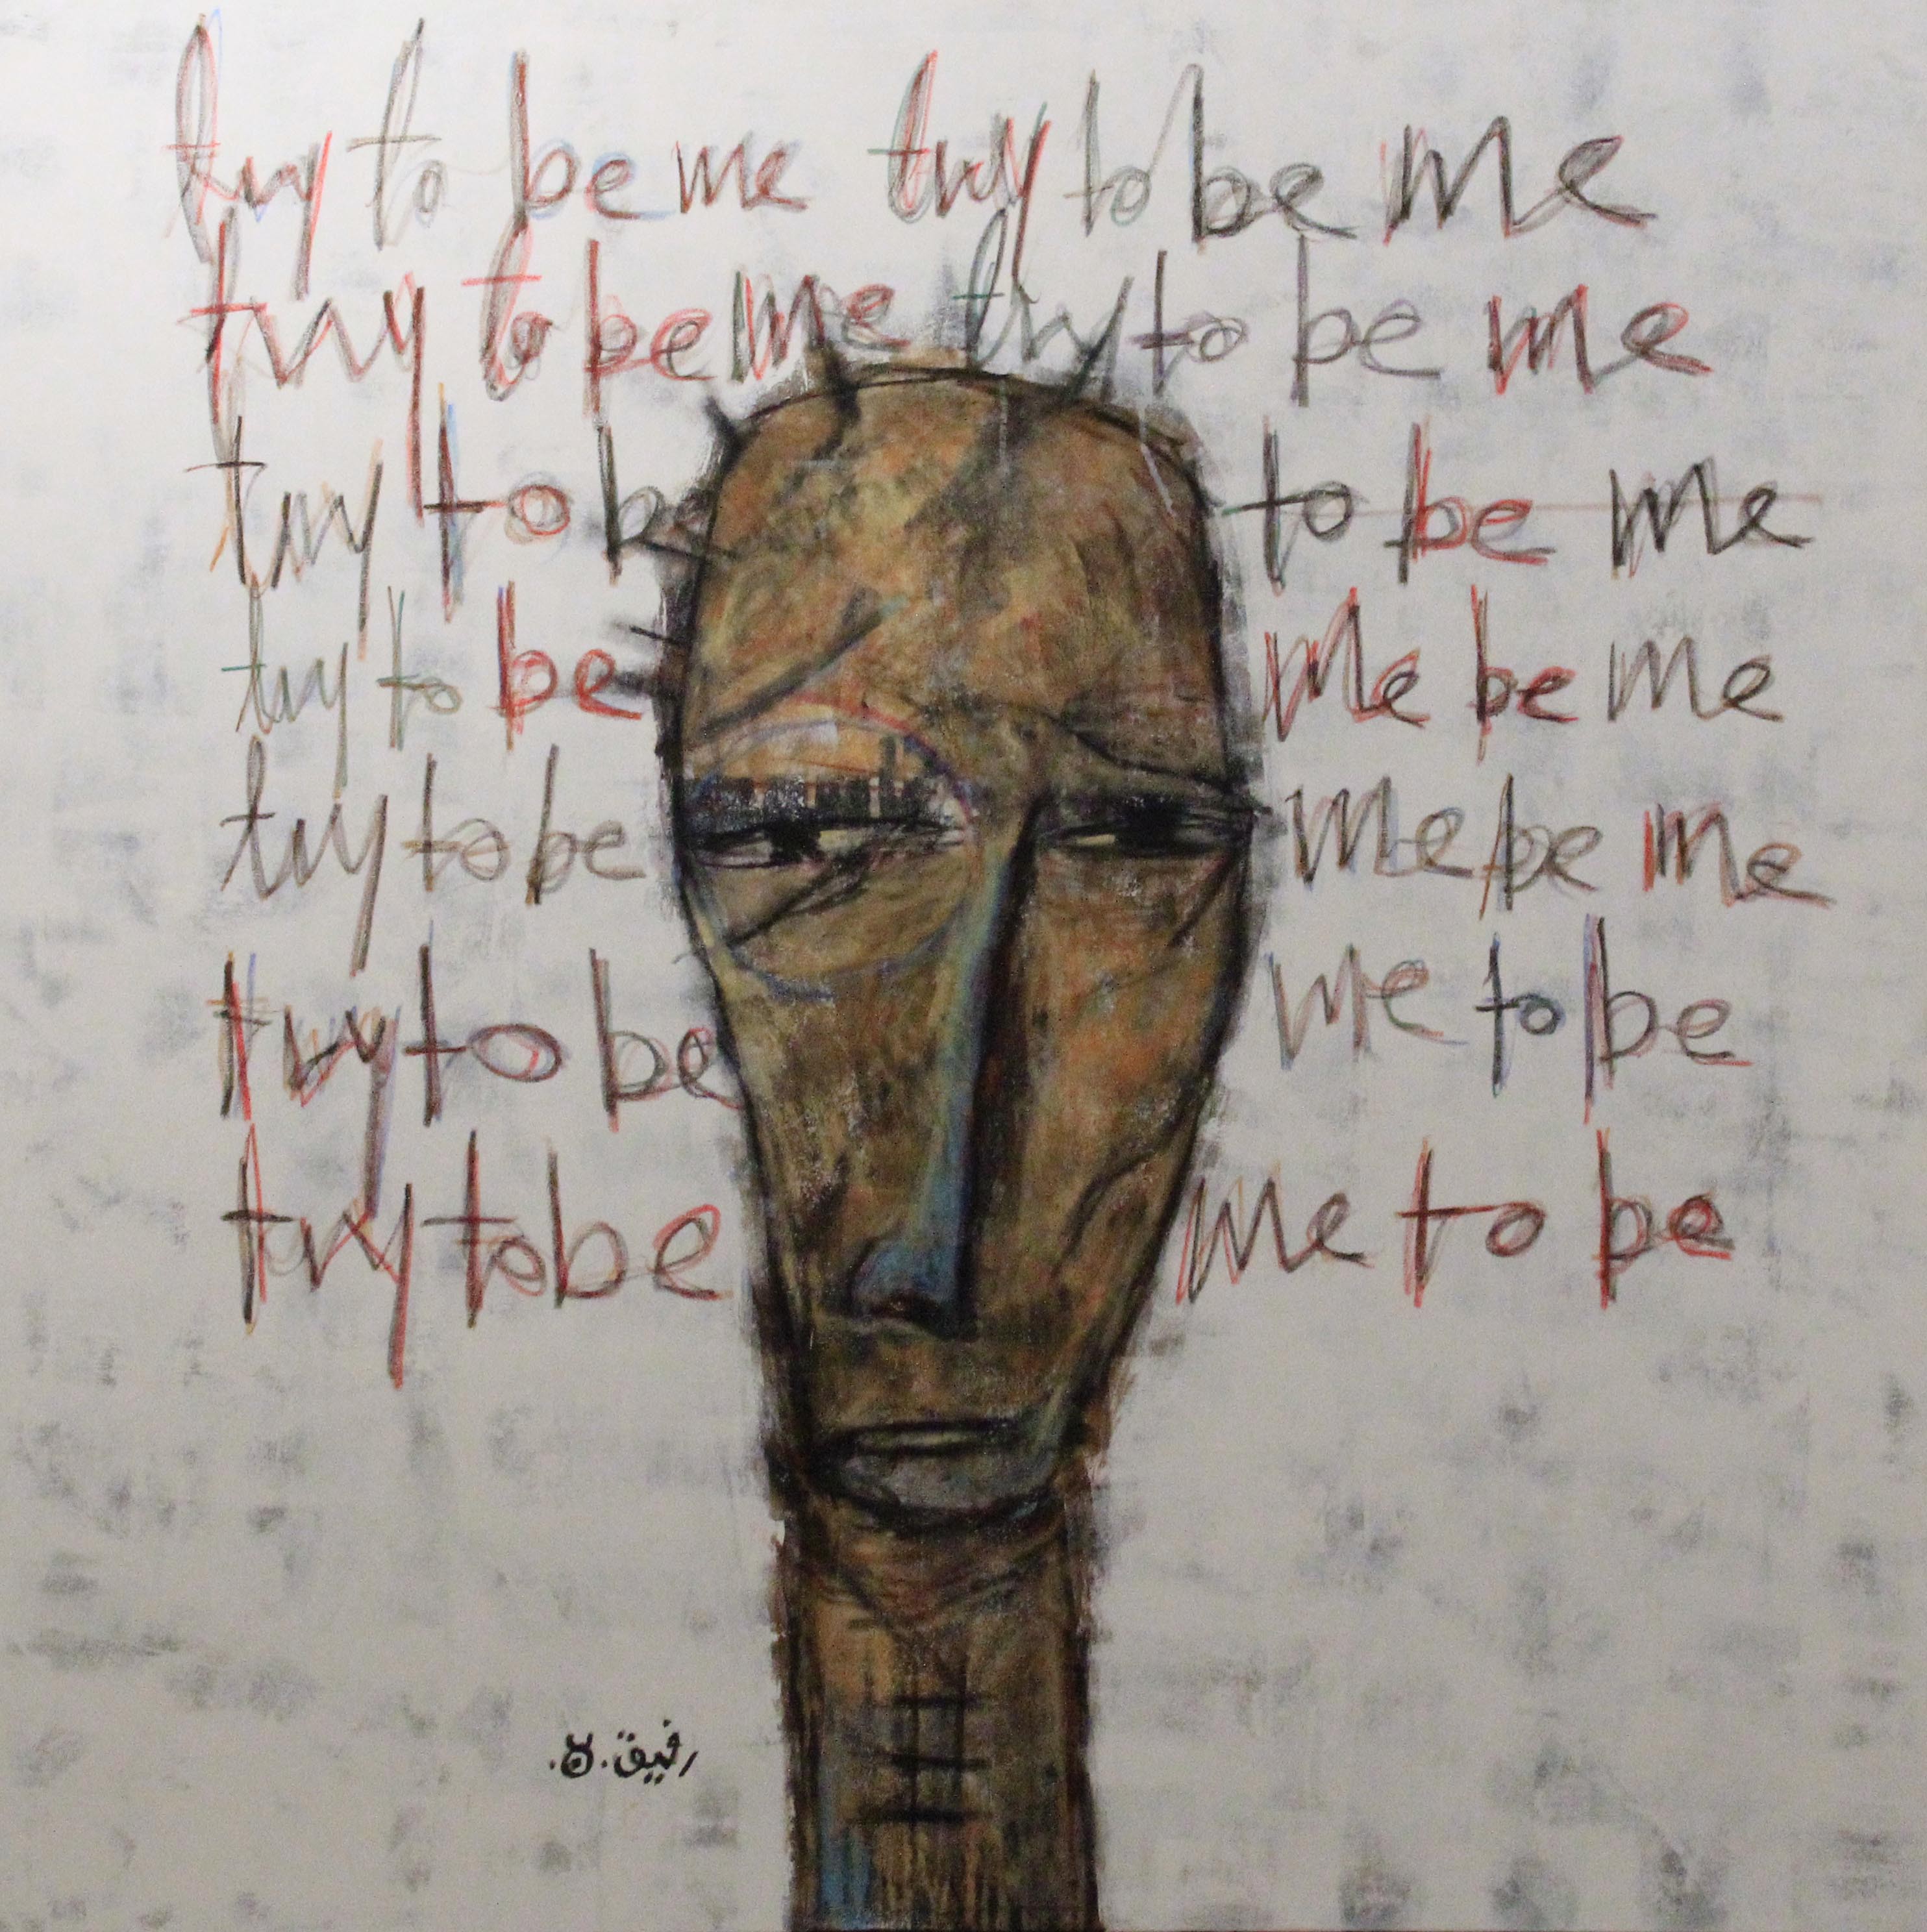 try to be me try to be me
try to be me try to be me
try to be to be me
try to be me be me
try to be me be me
try to be me to be
try to be me to be
رفيق